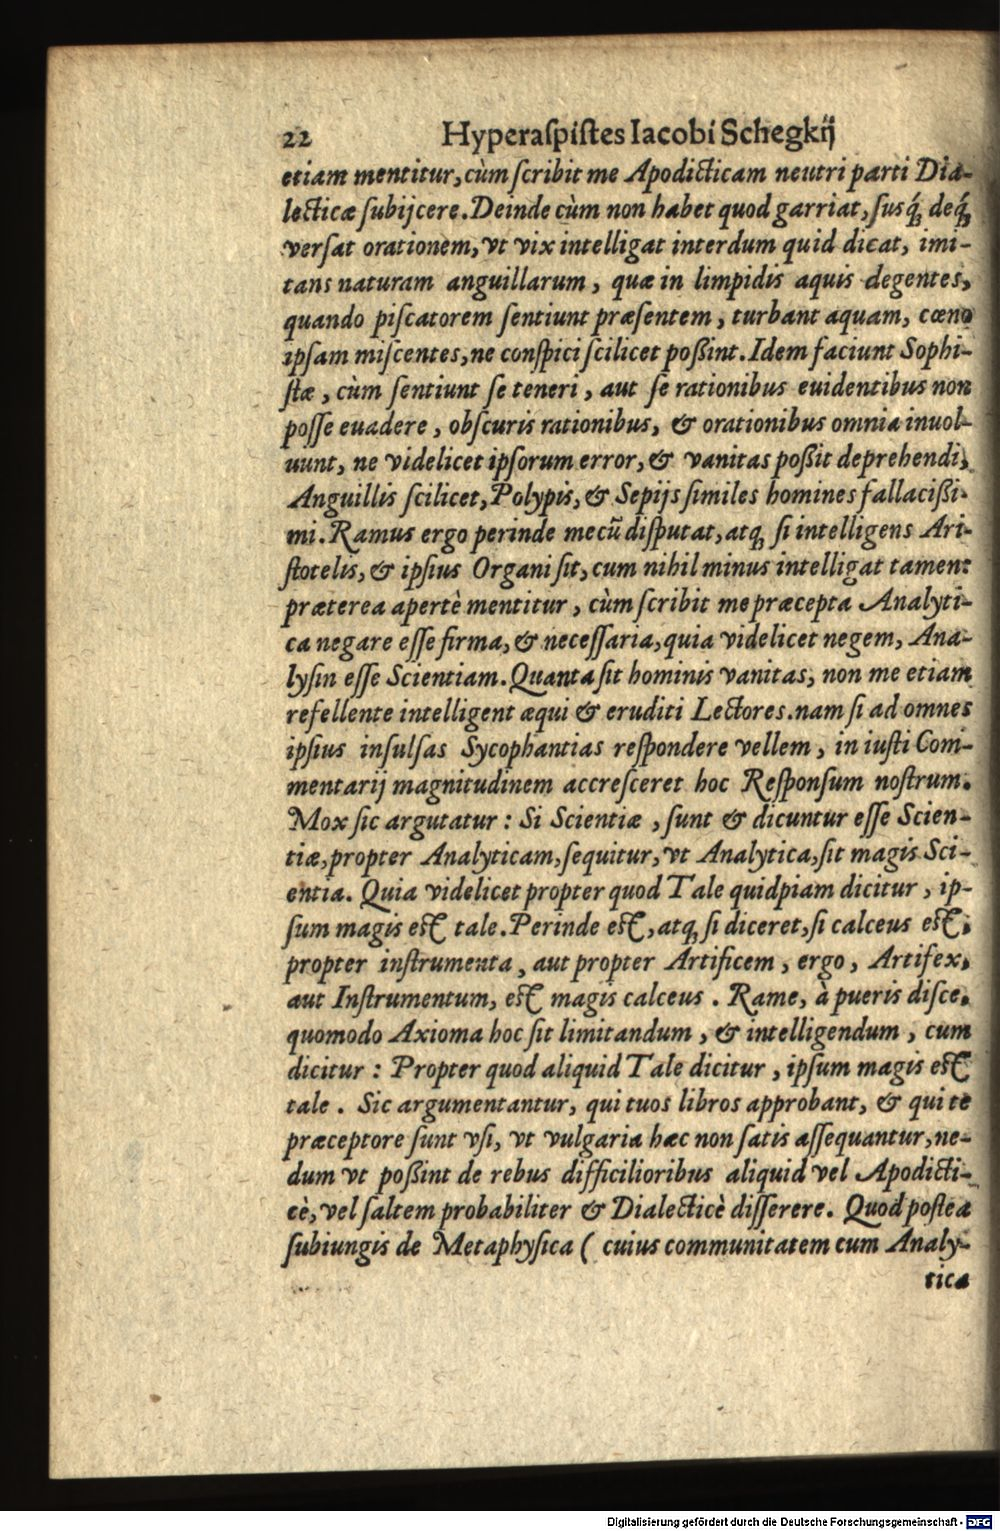 22 Hyperaſpiſtes Iacobi Schegkij
etiam mentitur, cùm ſcribit me Apodicticam neutri parti Dia-
lecticæ ſubijcere. Deinde cùm non habet quod garriat, ſuſq́; deq́;
verſat orationem, vt vix intelligat interdum quid dicat, imi-
tans naturam anguillarum, quæ in limpidis aquis degentes,
quando piſcatorem ſentiunt præſentem, turbant aquam, cœno
ipſam miſcentes, ne conſpici ſcilicet poßint. Idem faciunt Sophi-
ſtæ, cùm ſentiunt ſe teneri, aut ſe rationibus euidentibus non
poſſe euadere, obſcuris rationibus, & orationibus omnia inuol-
uunt, ne videlicet ipſorum error, & vanitas poßit deprehendi,
Anguillis ſcilicet, Polypis, & Sepijs ſimiles homines fallacißi-
mi. Ramus ergo perinde mecũ diſputat, atq; ſi intelligens Ari-
ſtotelis, & ipſius Organi ſit, cum nihil minus intelligat tamen:
præterea apertè mentitur, cùm ſcribit me præcepta Analyti-
ca negare eſſe firma, & neceſſaria, quia videlicet negem, Ana-
lyſin eſſe Scientiam. Quanta ſit hominis vanitas, non me etiam
refellente intelligent æqui & eruditi Lectores. nam ſi ad omnes
ipſius inſulſas Sycophantias reſpondere vellem, in iuſti Com-
mentarij magnitudinem accreſceret hoc Reſponſum noſtrum.
Mox ſic argutatur: Si Scientiæ, ſunt & dicuntur eſſe Scien-
tiæ, propter Analyticam, ſequitur, vt Analytica, ſit magis Sci-
entia. Quia videlicet propter quod Tale quidpiam dicitur, ip-
ſum magis eſt tale. Perinde eſt, atq; ſi diceret, ſi calceus eſt,
propter inſtrumenta, aut propter Artificem, ergo, Artifex,
aut Inſtrumentum, eſt magis calceus. Rame, à pueris diſce,
quomodo Axioma hoc ſit limitandum, & intelligendum, cum
dicitur: Propter quod aliquid Tale dicitur, ipſum magis eſt
tale. Sic argumentantur, qui tuos libros approbant, & qui te
præceptore ſunt vſi, vt vulgaria hæc non ſatis aſſequantur, ne-
dum vt poßint de rebus difficilioribus aliquid vel Apodicti-
cè, vel ſaltem probabiliter & Dialecticè diſſerere. Quod poſtea
ſubiungis de Metaphyſica (cuius communitatem cum Analy-
tica
Digitalisierung gefördert durch die Deutsche Forschungsgemeinschaft - DFG